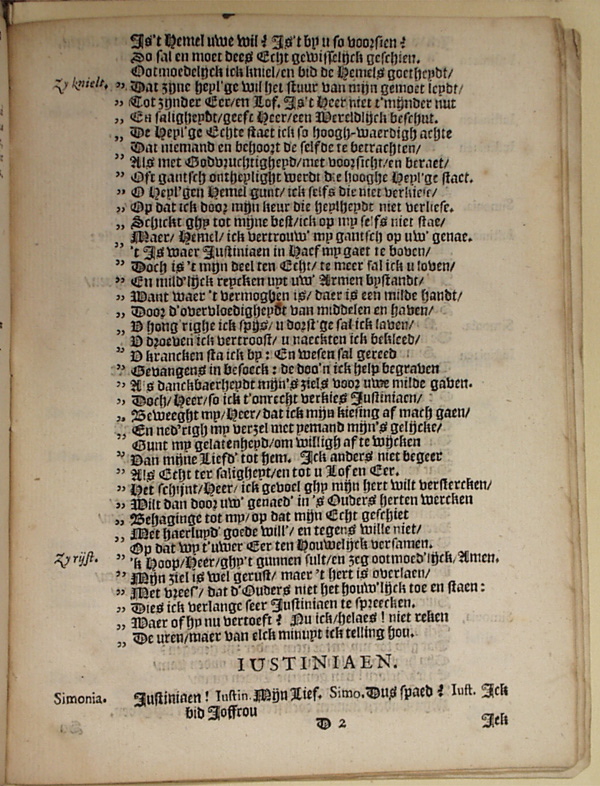 Is't Hemel uwe wil? Is't by u so voorsien?
So sal en moet dees Echt gewisselijck geschien.
Ootmoedelijck ick kniel/en bid de Hemels goetheydt/
Zy knielt. „ Dat zyne heyl'ge wil het stuur van mijn gemoet leydt/
„ Tot zynder Eer/en Lof. Is't Heer niet t'mijnder nut
„ En saligheydt/geeft Heer/een Wereldlijck beschut.
„ De Heyl'ge Echte staet ick so hoogh-waerdigh achte
Dat niemand en behoort de selfde te betrachten/
„ Als met Godvruchtigheyd/met voorsicht/en beraet/
„ Oft gantsch ontheylight werdt die hooghe Heyl'ge staet.
„ O Heyl'gen Hemel gunt/ick selfs die niet verkiese/
„ Op dat ick door mijn keur die heylheydt niet verliese.
„ Schickt ghy tot mijne best/ick op my selfs niet stae/
„ Maer/ Hemel/ ick vertrouw' my gantsch op uw' genae.
„ 't Is waer Justiniaen in Haef my gaet te boven/
„ Doch is 't mijn deel ten Echt/ te meer sal ick u loven/
„ En mild'lijck reycken uyt uw' Armen bystandt/
„ Want waer 't vermoghen is/ daer is een milde handt/
„ Door d'overvloedigheydt van middelen en haven/
„ V hong'righe ick spijs/ u dorst'ge sal ick laven/
„ V droeven ick vertroost/ u naeckten ick bekleed/
„ V krancken sta ick by: En wesen sal gereed
„ Gevangens in besoeck: de doo'n ick help begraven
„ A's danckbaerheydt mijn's ziels voor uwe milde gaven.
„ Doch/Heer/so ick t'onrecht verkies Justiniaen/
„ Beweeght my/Heer/dat ick mijn kiesing af mach gaen/
„ En ned'righ my verzel met yemand mijn's gelijcke/
Gunt my gelatenheyd/om willigh af te wijcken
„ Van mijne Liefd' tot hem. Ick anders niet begeer
„ Als Echt ter saligheyt/en tot u Lof en Eer.
„ Het schijnt/Heer/ ick gevoel ghy mijn hert wilt verstercken/
„ Wilt dan door uw' genaed' in 's Ouders herten wercken
„ Behaginge tot my/op dat mijn Echt geschiet
„ Met haerluyd' goede wil'/ en tegens wille niet/
„ Op dat wy t'uwer Eer ten Houwelijck versamen.
Zy rijst. „ 'k Hoop/Heer/ghy't gunnen sult/en zeg ootmoed'lijck/Amen.
„ Mijn ziel is wel gerust/ maer 't hert is overlaen/
„ Met vrees'/ dat d'Ouders niet het houw'lijck toe en staen:
„ Dies ick verlange seer Justiniaen te spreecken.
„ Waer of hy nu vertoeft? Nu ick/helaes! niet reken
„ De uren/maer van elck minuyt ick telling hou.
IUSTINIAEN.
Simonia. Justiniaen! Iustin. Mijn Lief. Simo. Dus spaed? Iust. Ick
bid Joffrou
D 2 Ick